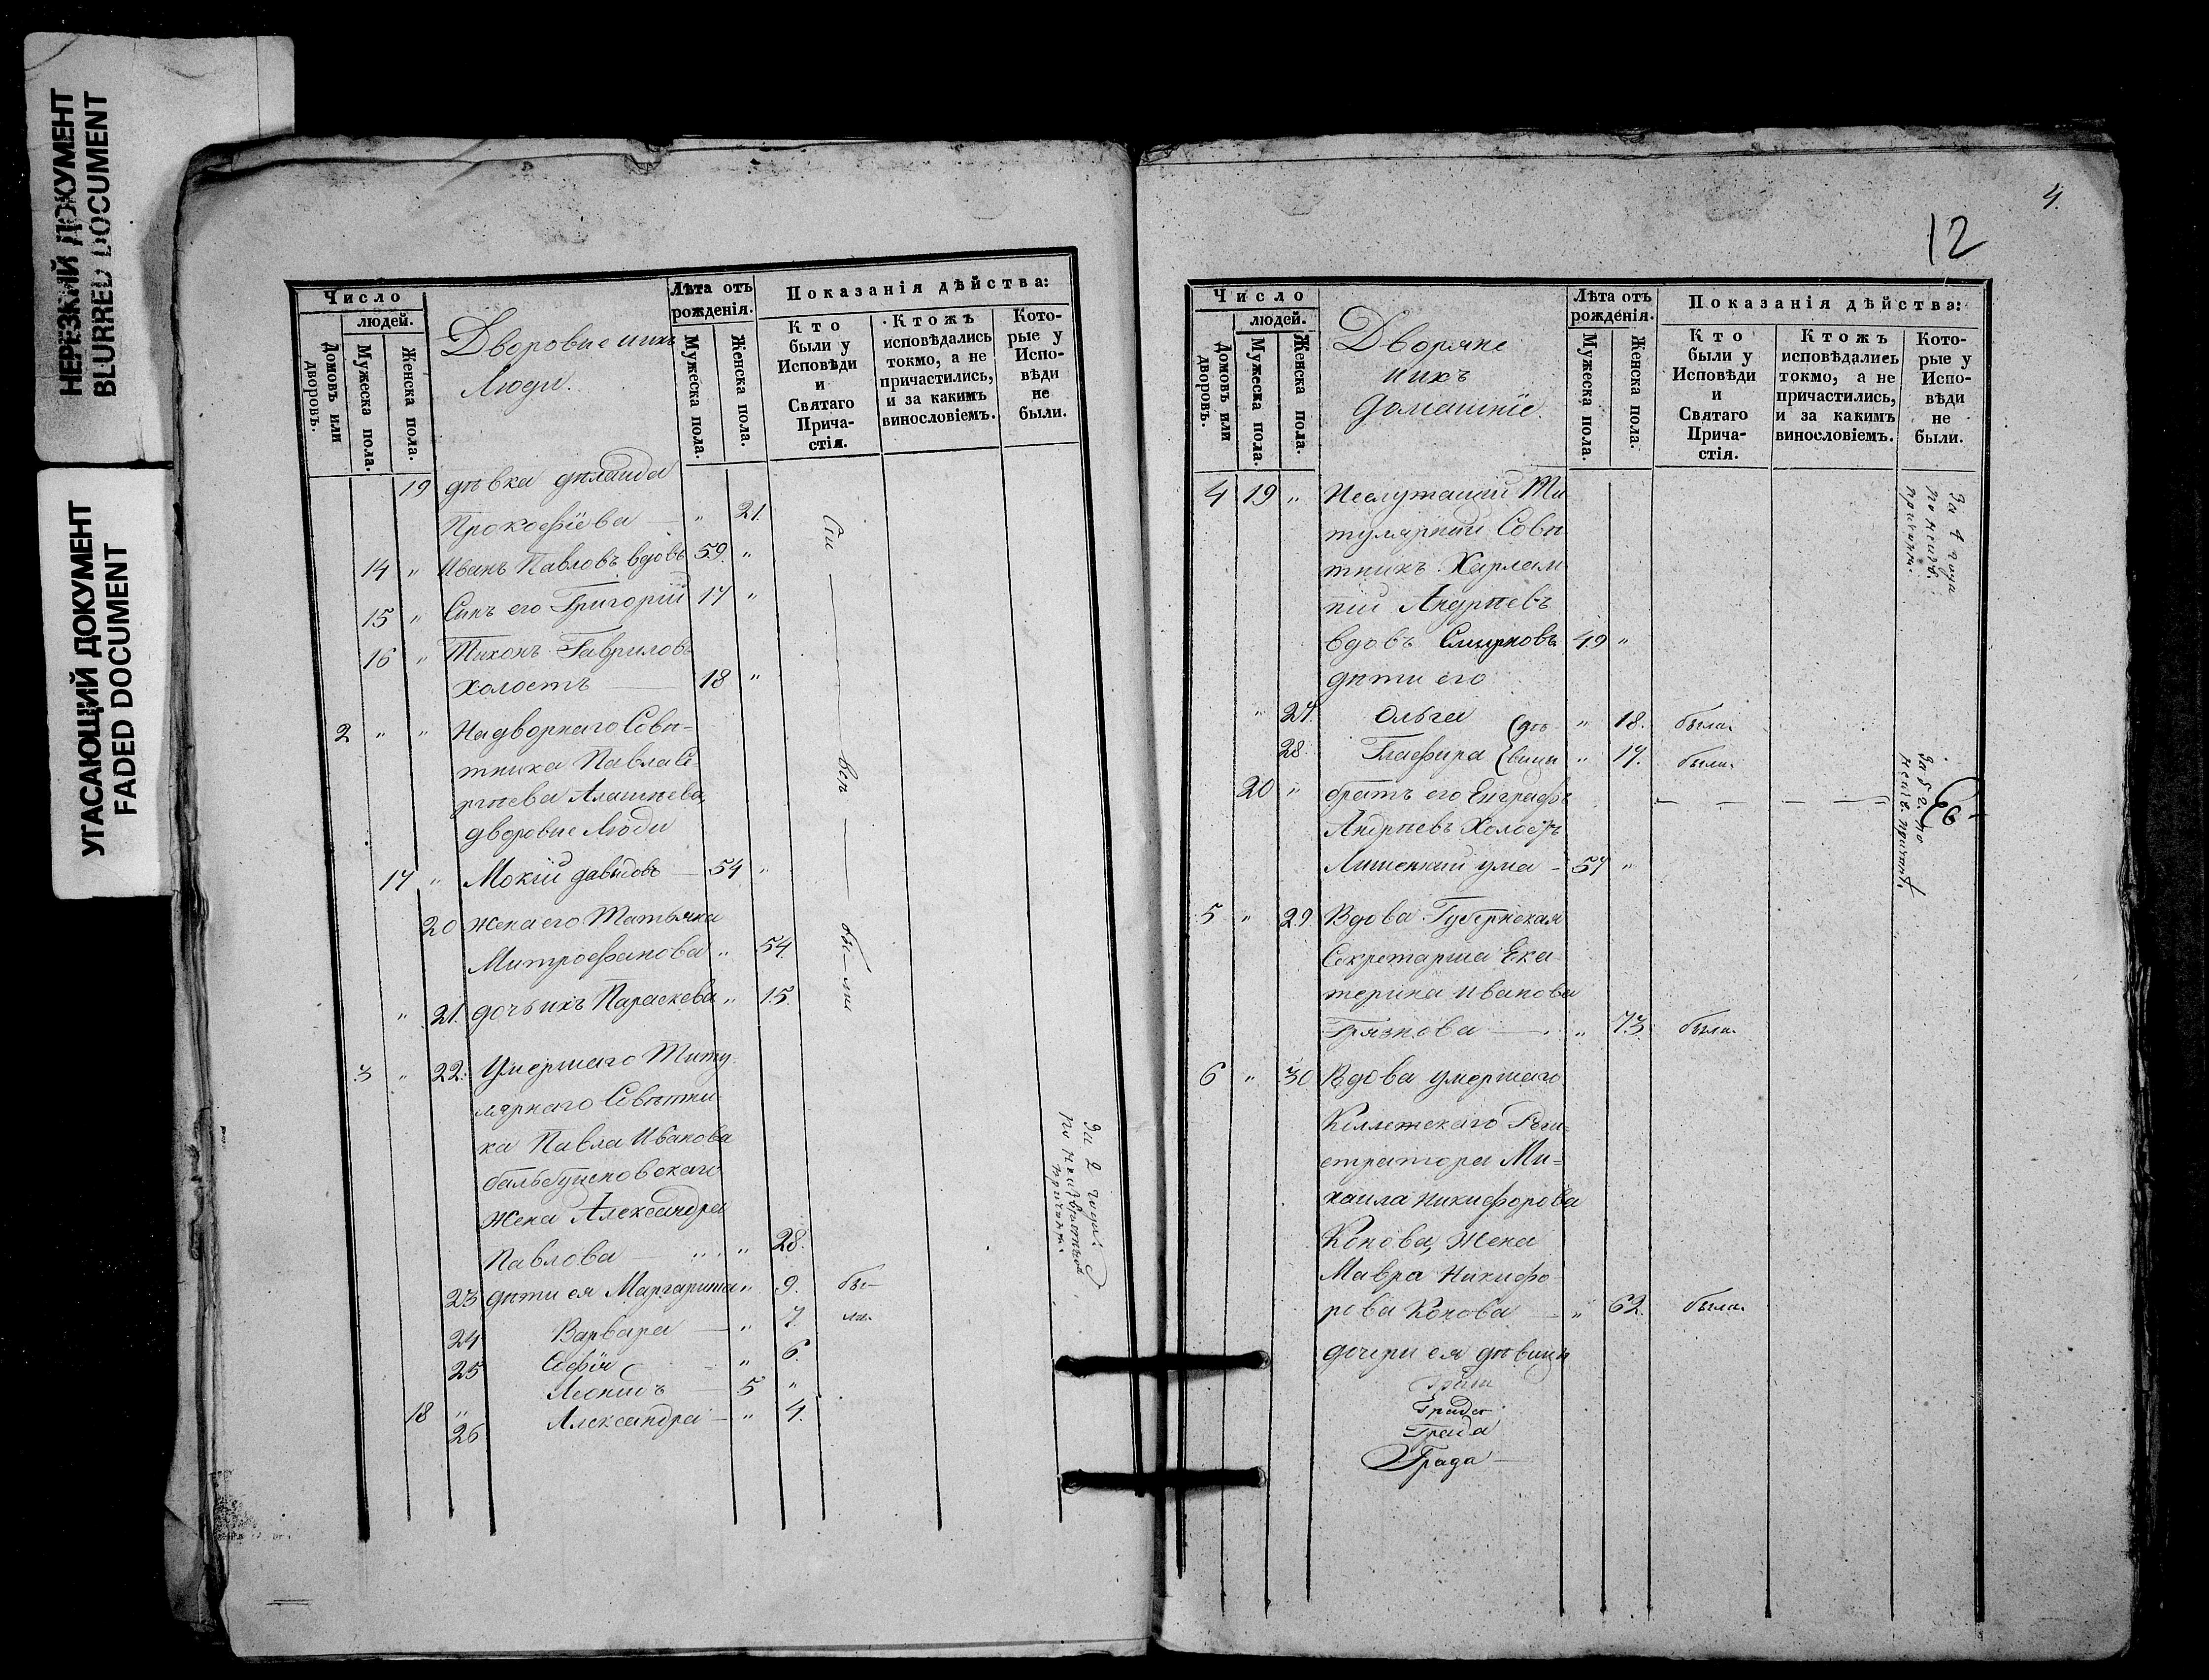 НЕРЕЗКИЙ ДОКУМЕНТ
BLURRED DOCUMENT
УГАСАЮЩИЙ ДОКУМЕНТ
FADED DOCUMENT
Число
людей.
Домовъ или дворовъ.
Мужеска пола.
Женска пола.
Дворовые ихъ
Люди.
Лѣта отъ рожденія.
Мужеска пола.
Женска пола.
Показанія дѣйства:
Кто были у Исповѣди и Святаго Причастія.
Ктожъ исповѣдались токмо, а не причастились, и за какимъ винословіемъ.
Которые у Исповѣди не были.
19 дѣвка
Прокофіева — " 21.
14 " Иванъ Павловъ вдовъ 59. "
15 " Сынъ его Григорій 17 "
16 " Тихонъ Гавриловъ
холостъ — 18 "
Сіи — всѣ — бы-ли
2 " " Надворнаго Совѣ-
тника Павла Се
ргѣева
дворовые Люди
17 " Мокій Давыдовъ — 54 "
20 жена его Татьяна
Митрофанова " 54.
" 21. дочь ихъ Параскева " 15.
3 " 22. Умершаго Титу
лярнаго Совѣтни-
ка Павла Иванова
Жена Александра
Павлова " " 28.
За 2 года
по неизвѣстной
причинѣ.
23 дѣти ея Маргарита " 9. бы-
24 Варвара — " 7. ли.
25 Софія - " 6.
18 " Леонидъ — 5 "
26 Александра — " 4.
4.
12
Число
людей.
Домовъ или дворовъ.
Мужеска пола.
Женска пола.
Дворяне
ихъ
домашніе.
Лѣта отъ рожденія.
Мужеска пола.
Женска пола.
Показанія дѣйства:
Кто были у Исповѣди и Святаго Причастія.
Ктожъ исповѣдались токмо, а не причастились, и за какимъ винословіемъ.
Которые у Исповѣди не были.
4 19 " Неслужащій Ти
тулярный Совѣ
тникъ Харлам
пій Андрѣевъ
вдовъ Смирновъ 49 "
За 4 года
по неизв.
причинѣ.
дѣти его
" 27. Ольга (дѣ- " 18. была.
28. Глафира (вицы " 17. была.
20 " братъ его Евграфъ
Андрѣевъ Холостъ
Лишенный ума - 57 "
За 5 г. по
неизв. причинѣ.
5 " 29. Вдова Губернская
Секретарша Ека
терина Иванова
Грязнова — " 73. была.
6 " 30 Вдова умершаго
Коллежскаго Реги-
стратора Ми-
хаила Никифорова
Конова, Жена
Мавра Никифо-
рова Конова — " 62. была.
дочери ея дѣвицы
Града
Града
Града —